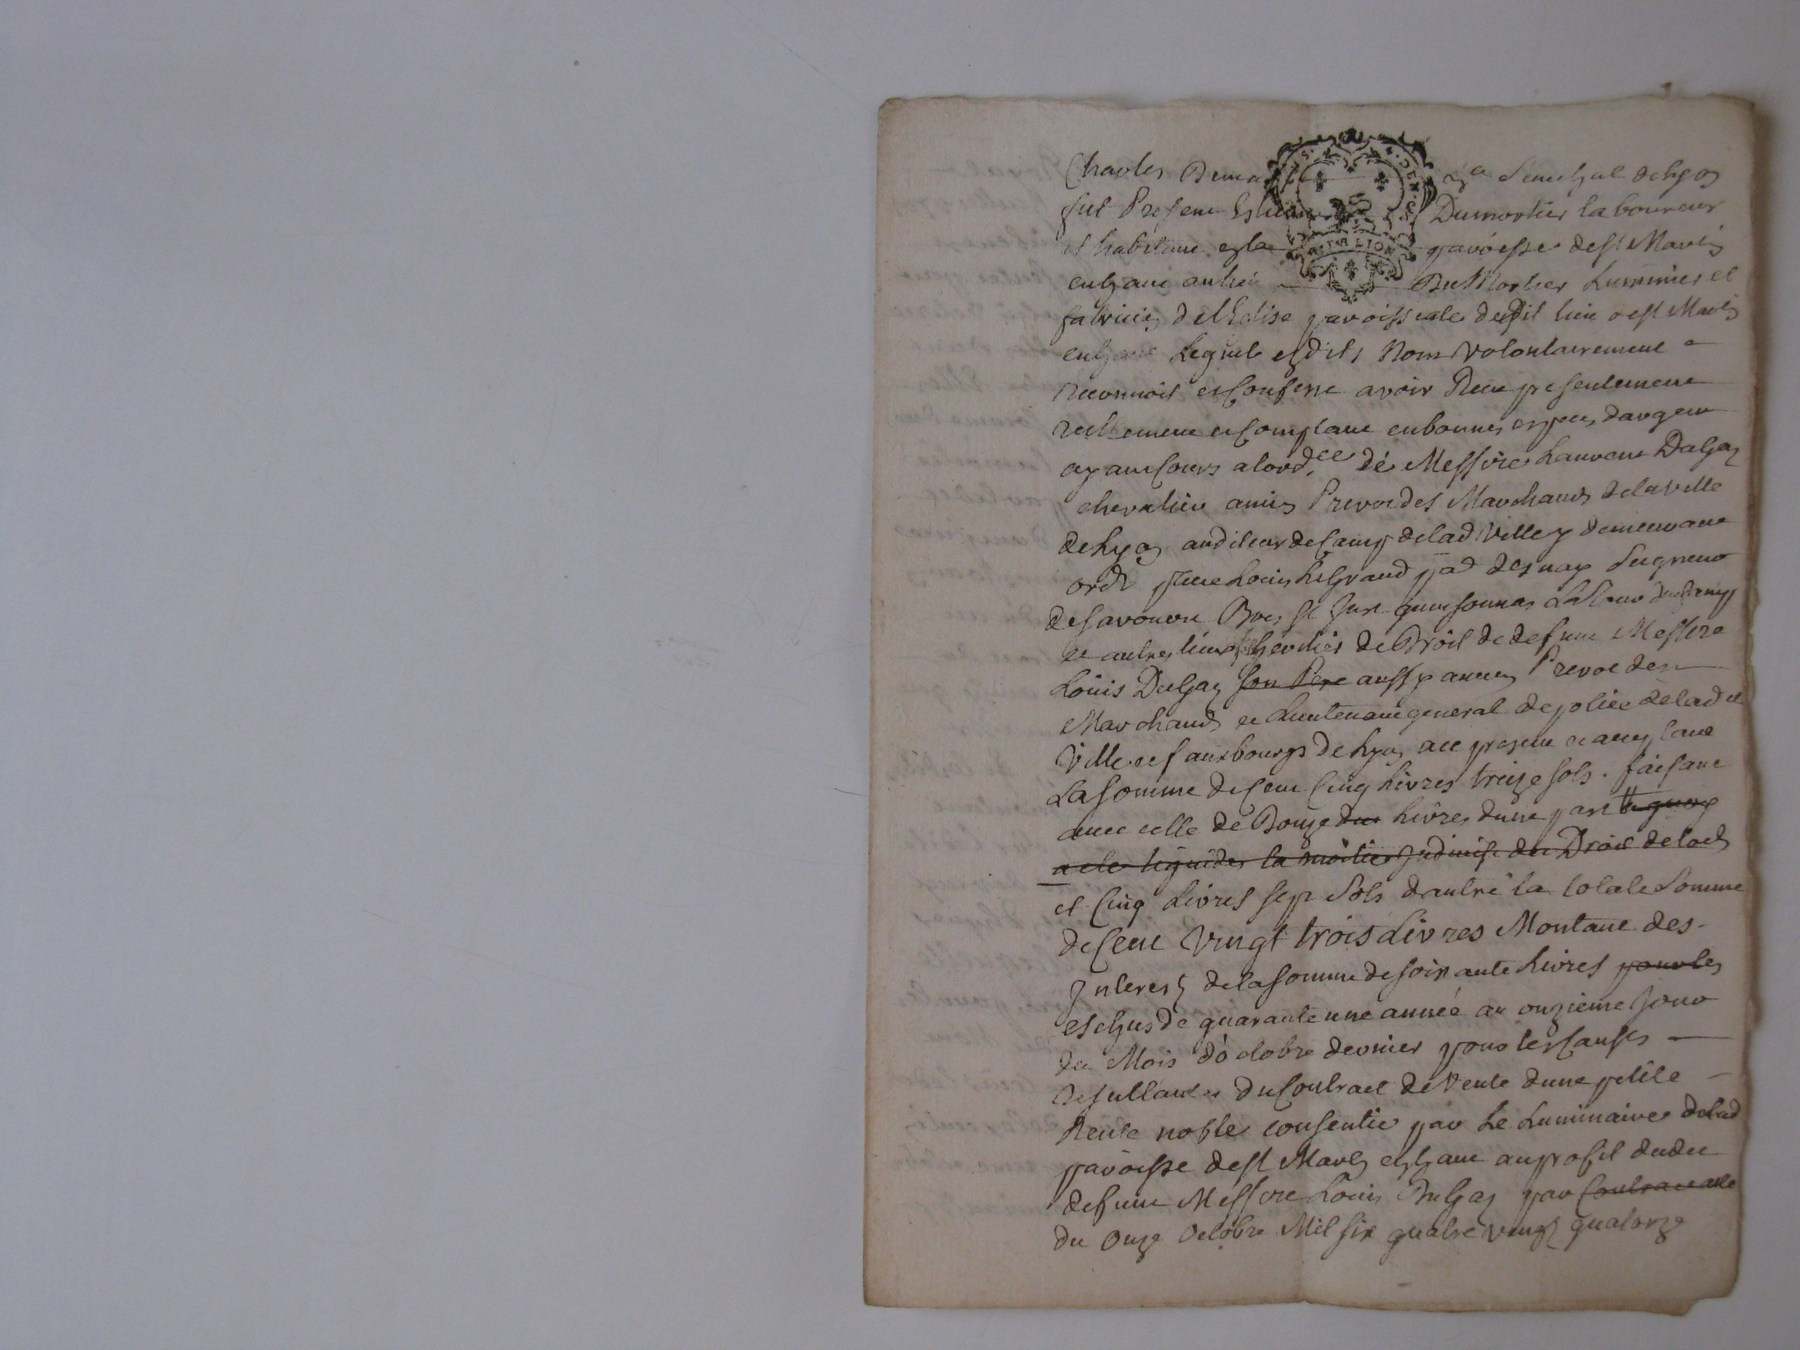 Charles Senechal de Lyon
fut Present Dumortier laboureur
et habitant en la paroisse de St Martin
en haut Du Mortier Luminier et
fabricien de l'Eglise paroissiale dudit lieu de St Martin
en haut Lequel esdits Noms Volontairement
reconnoit et Confesse avoir Receu presentement
reellement et Comptant en bonnes especes d'argent
ayant Cours a l'ord.ce de Messire Laurent
chevalier ancien Prevot des Marchands de la ville
de Lyon auditeur de Camp de lad Ville y demeurant
ord. Louis Le Grand Seigneur
de Savonon
et autres lieux heritier de Droit de defunt Messire
Louis Dugas son Pere aussy ancien Prevot des
Marchands et Lieutenant general de police de lad
Ville et fauxbourgs de Lyon present et acceptant
La Somme de Cent Cinq Livres treize sols. faisant
avec celle de Douze Livres d'une part
la moitié Indivise du Droit de lods
et Cinq Livres sept Sols d'autre la totale Somme
de Cent Vingt trois Livres Montant des
Interests de la Somme de soixante Livres pour les
eschus de quarante une année au onzieme Jour
du Mois d'octobre dernier pour les Causes
resultantes du Contract de Vente d'une petite
Rente noble consentie par Le Luminaire de lad
paroisse de St Martin en haut au profit dudit
defunt Messire Louis Dugas par Contract
du onze Octobre Mil six quatre vingt quatorze